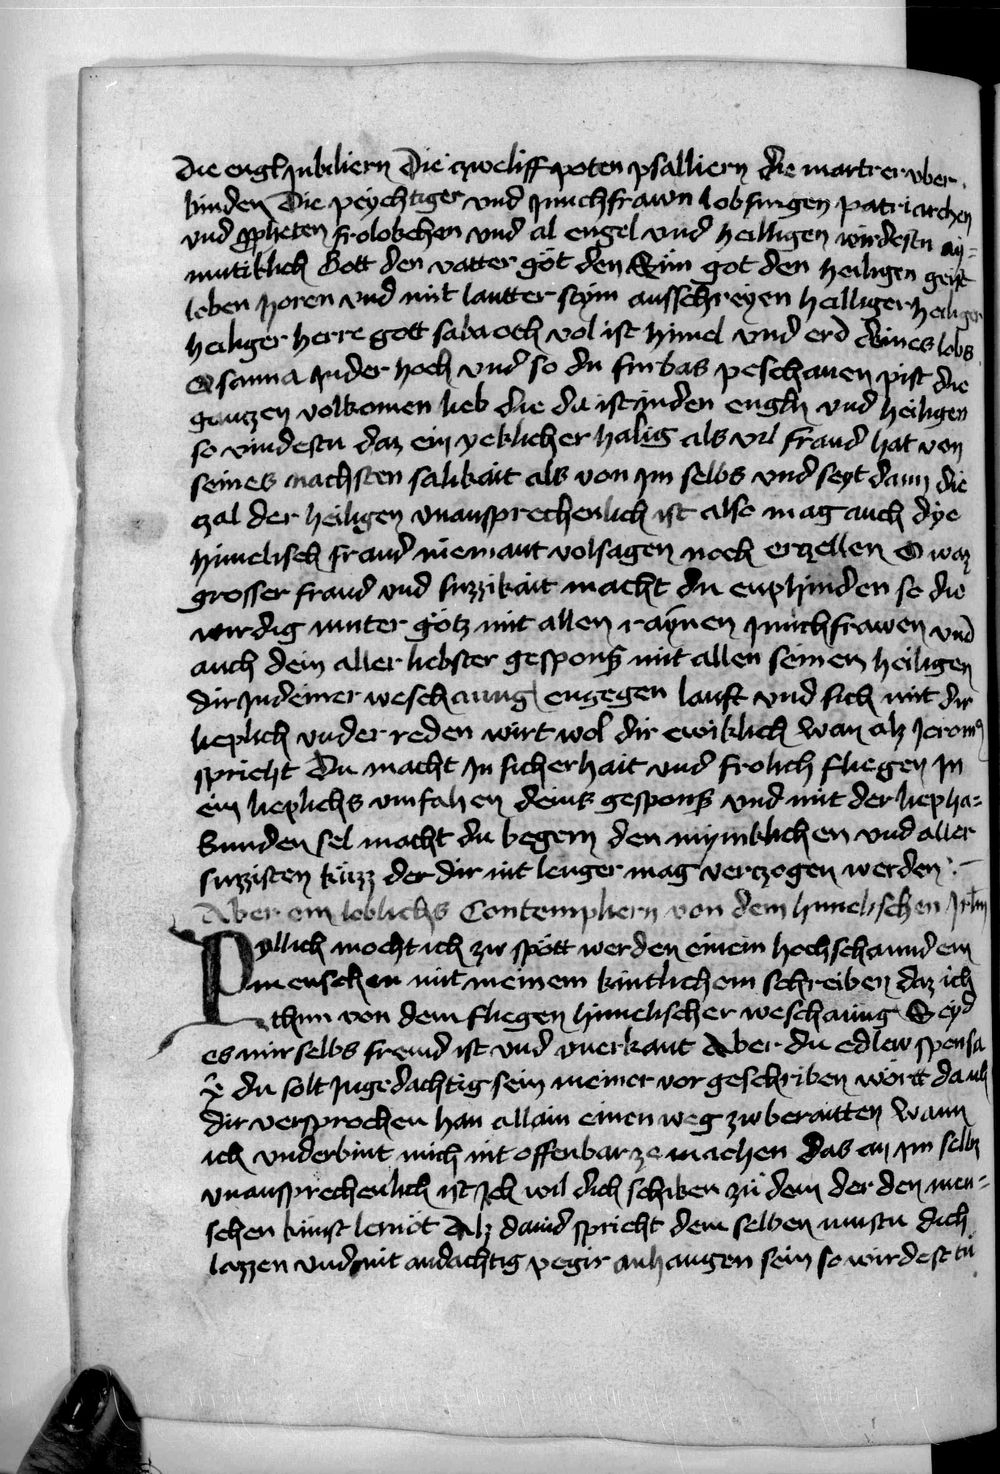 die engl Jubiliern Die zweliff poten psalliern die martrer vber
binden Die peychtiger vnd Junchfrawn lobsingen patriarchen
vnd ꝓpheten frolokchen vnd al engel vnd heilligen wirdestu ay=
mutiklich Gott den vatter got den Sun got den heiligen geist
loben horen vnd mit lautter stym ausschreyen heilliger heiliger
heiliger herre gott sabaoth vol ist himel vnd erd deines lobs
Osanna Jnder hoch vnd so du furbas peschauen pist die
gantzen volkomen lieb die da ist inden engln vnd heiligen
so vindestu daz ein yeklicher halig als vil fraud hat von
seines nachsten salikait als von Jm selbs vnd seyt dann die
czal der heiligen vnausprechenlich ist also mag auch dye
himelisch fraud niemant volsagen noch erzellen O waz
grosser fraud vnd suzzikait macht du enphinden so die
wirdig muter gotz mit allen raynen Junchfrawen vnd
auch dein aller liebster gesponß mit allen seinen heiligen
dir Jndeiner weschauung engegen lauft vnd sich mit dir
lieplich vnder reden wirt wol dir ewiklich wan alz Jeronimus
spricht Du macht Jn sicherhait vnd frolich fliegen Jn
ein lieplichs vmfahen deins gesponß vnd mit der liepha=
bunden sel macht du begern den mynniklichen vnd aller
suzzisten kuzz der dir nit lenger mag verczogen werden :~
Aber ein loblichs Contempliern von dem himelischen Jrlm
Pyllich mocht ich zw spott werden einem hochschaunden
menschen mit meinem kintlichem schreiben daz ich
thun von dem fliegen himelischer weschaung Seyd
es mir selbs fremd ist vnd vnerkant Aber du edlew sponsa
du solt Jngedachtig sein meiner vor geschriben wort da ich
dir versprochen han allain einen weg zw beraitten wann
ich vnderbint mich nit offenbar ze machen das an Jm selbz
vnausprechenlich ist Jch wil dich schiken zu dem der den men=
schen kunst lernot Alz dauid spricht dem selben mustu dich
lazzen vnd mit andachtig pegir anhangen sein so wirdest tu